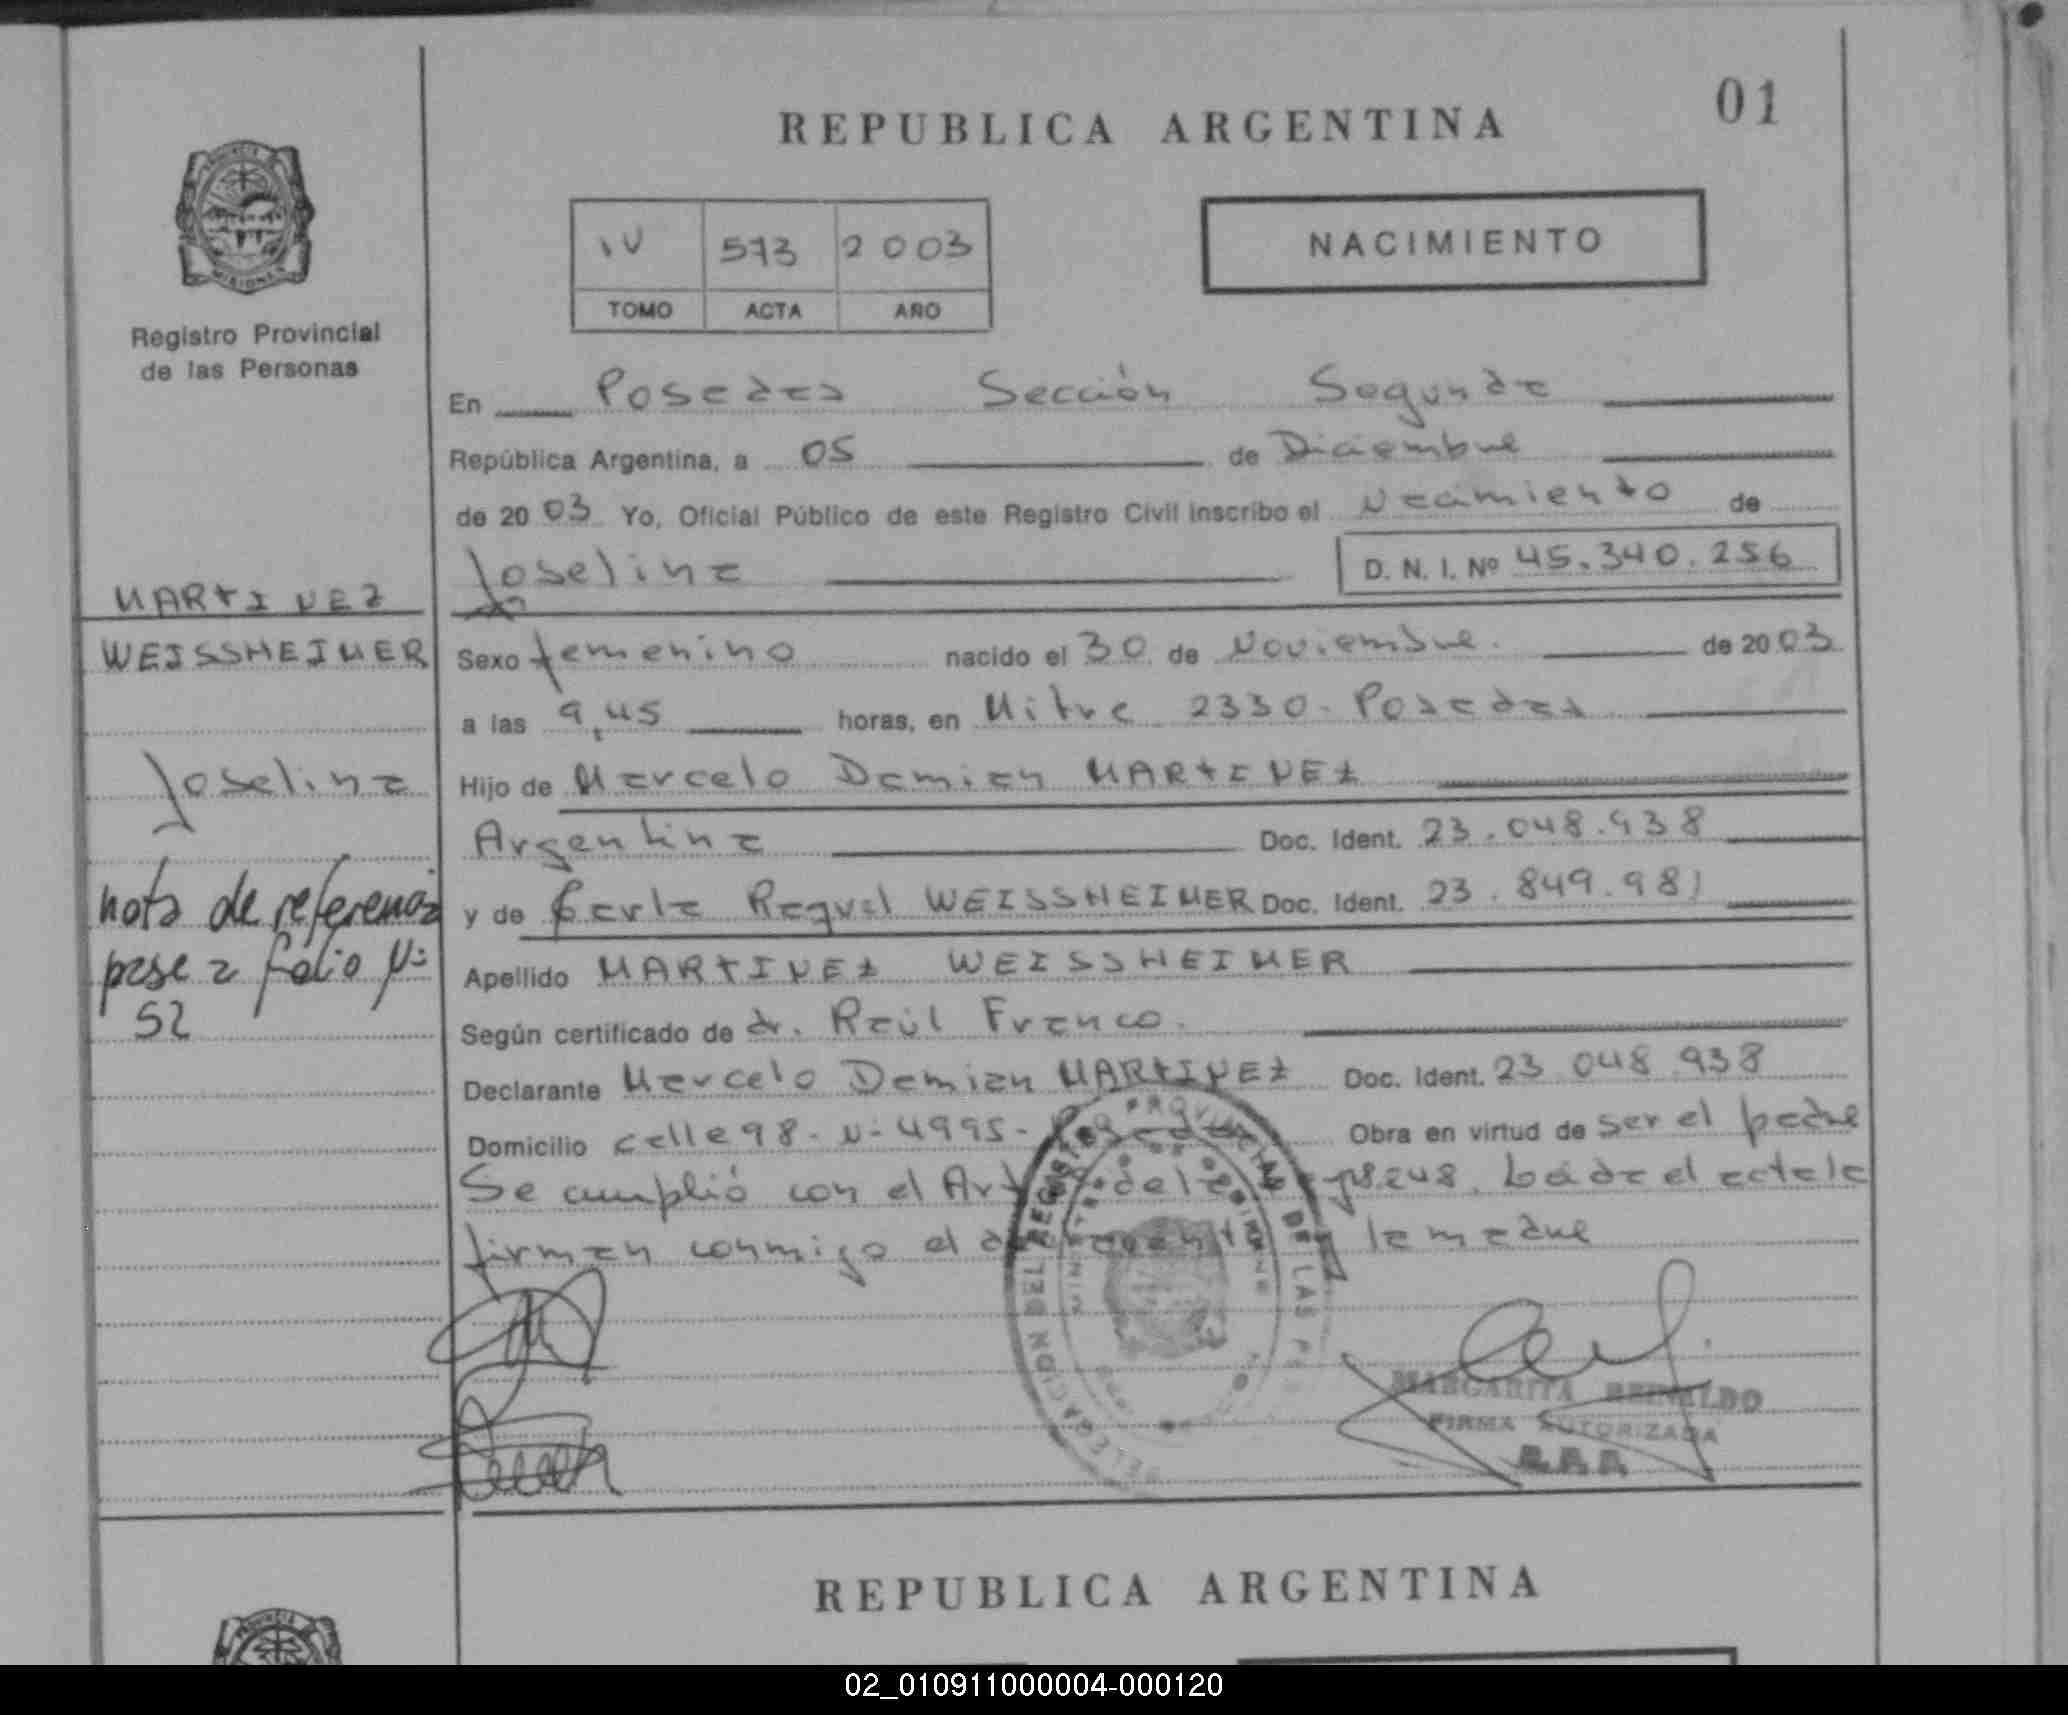 REPUBLICA ARGENTINA
01
IV 573 2003
TOMO ACTA AÑO
NACIMIENTO
Registro Provincial
de las Personas
En Posadas Sección Segunda
República Argentina, a 05 de Diciembre
de 2003 Yo, Oficial Público de este Registro Civil inscribo el Nacimiento de
Joselina D. N. I. Nº 45.340.256
MARTINEZ
WEISSHEIMER
Joselina
nota de referencia
pase a folio Nº
52
Sexo femenino nacido el 30 de Noviembre. de 2003
a las 9,45 horas, en Mitre 2330. Posadas
Hijo de Marcelo Damian MARTINEZ
Argentina Doc. Ident. 23.048.938
y de Carla Raquel WEISSHEIMER Doc. Ident. 23.849.981
Apellido MARTINEZ WEISSHEIMER
Según certificado de dr. Raúl Franco.
Declarante Marcelo Damian MARTINEZ Doc. Ident. 23 048 938
Domicilio calle 98. Nº 4995- Posadas Obra en virtud de ser el padre
Se cumplió con el Art de la 18.248. Leída el acta la
firman conmigo el declarante la madre
DELEGACION DEL REGISTRO PROVINCIAL DE LAS
MARGARITA REINALDO
FIRMA AUTORIZADA
REPUBLICA ARGENTINA
02_010911000004-000120